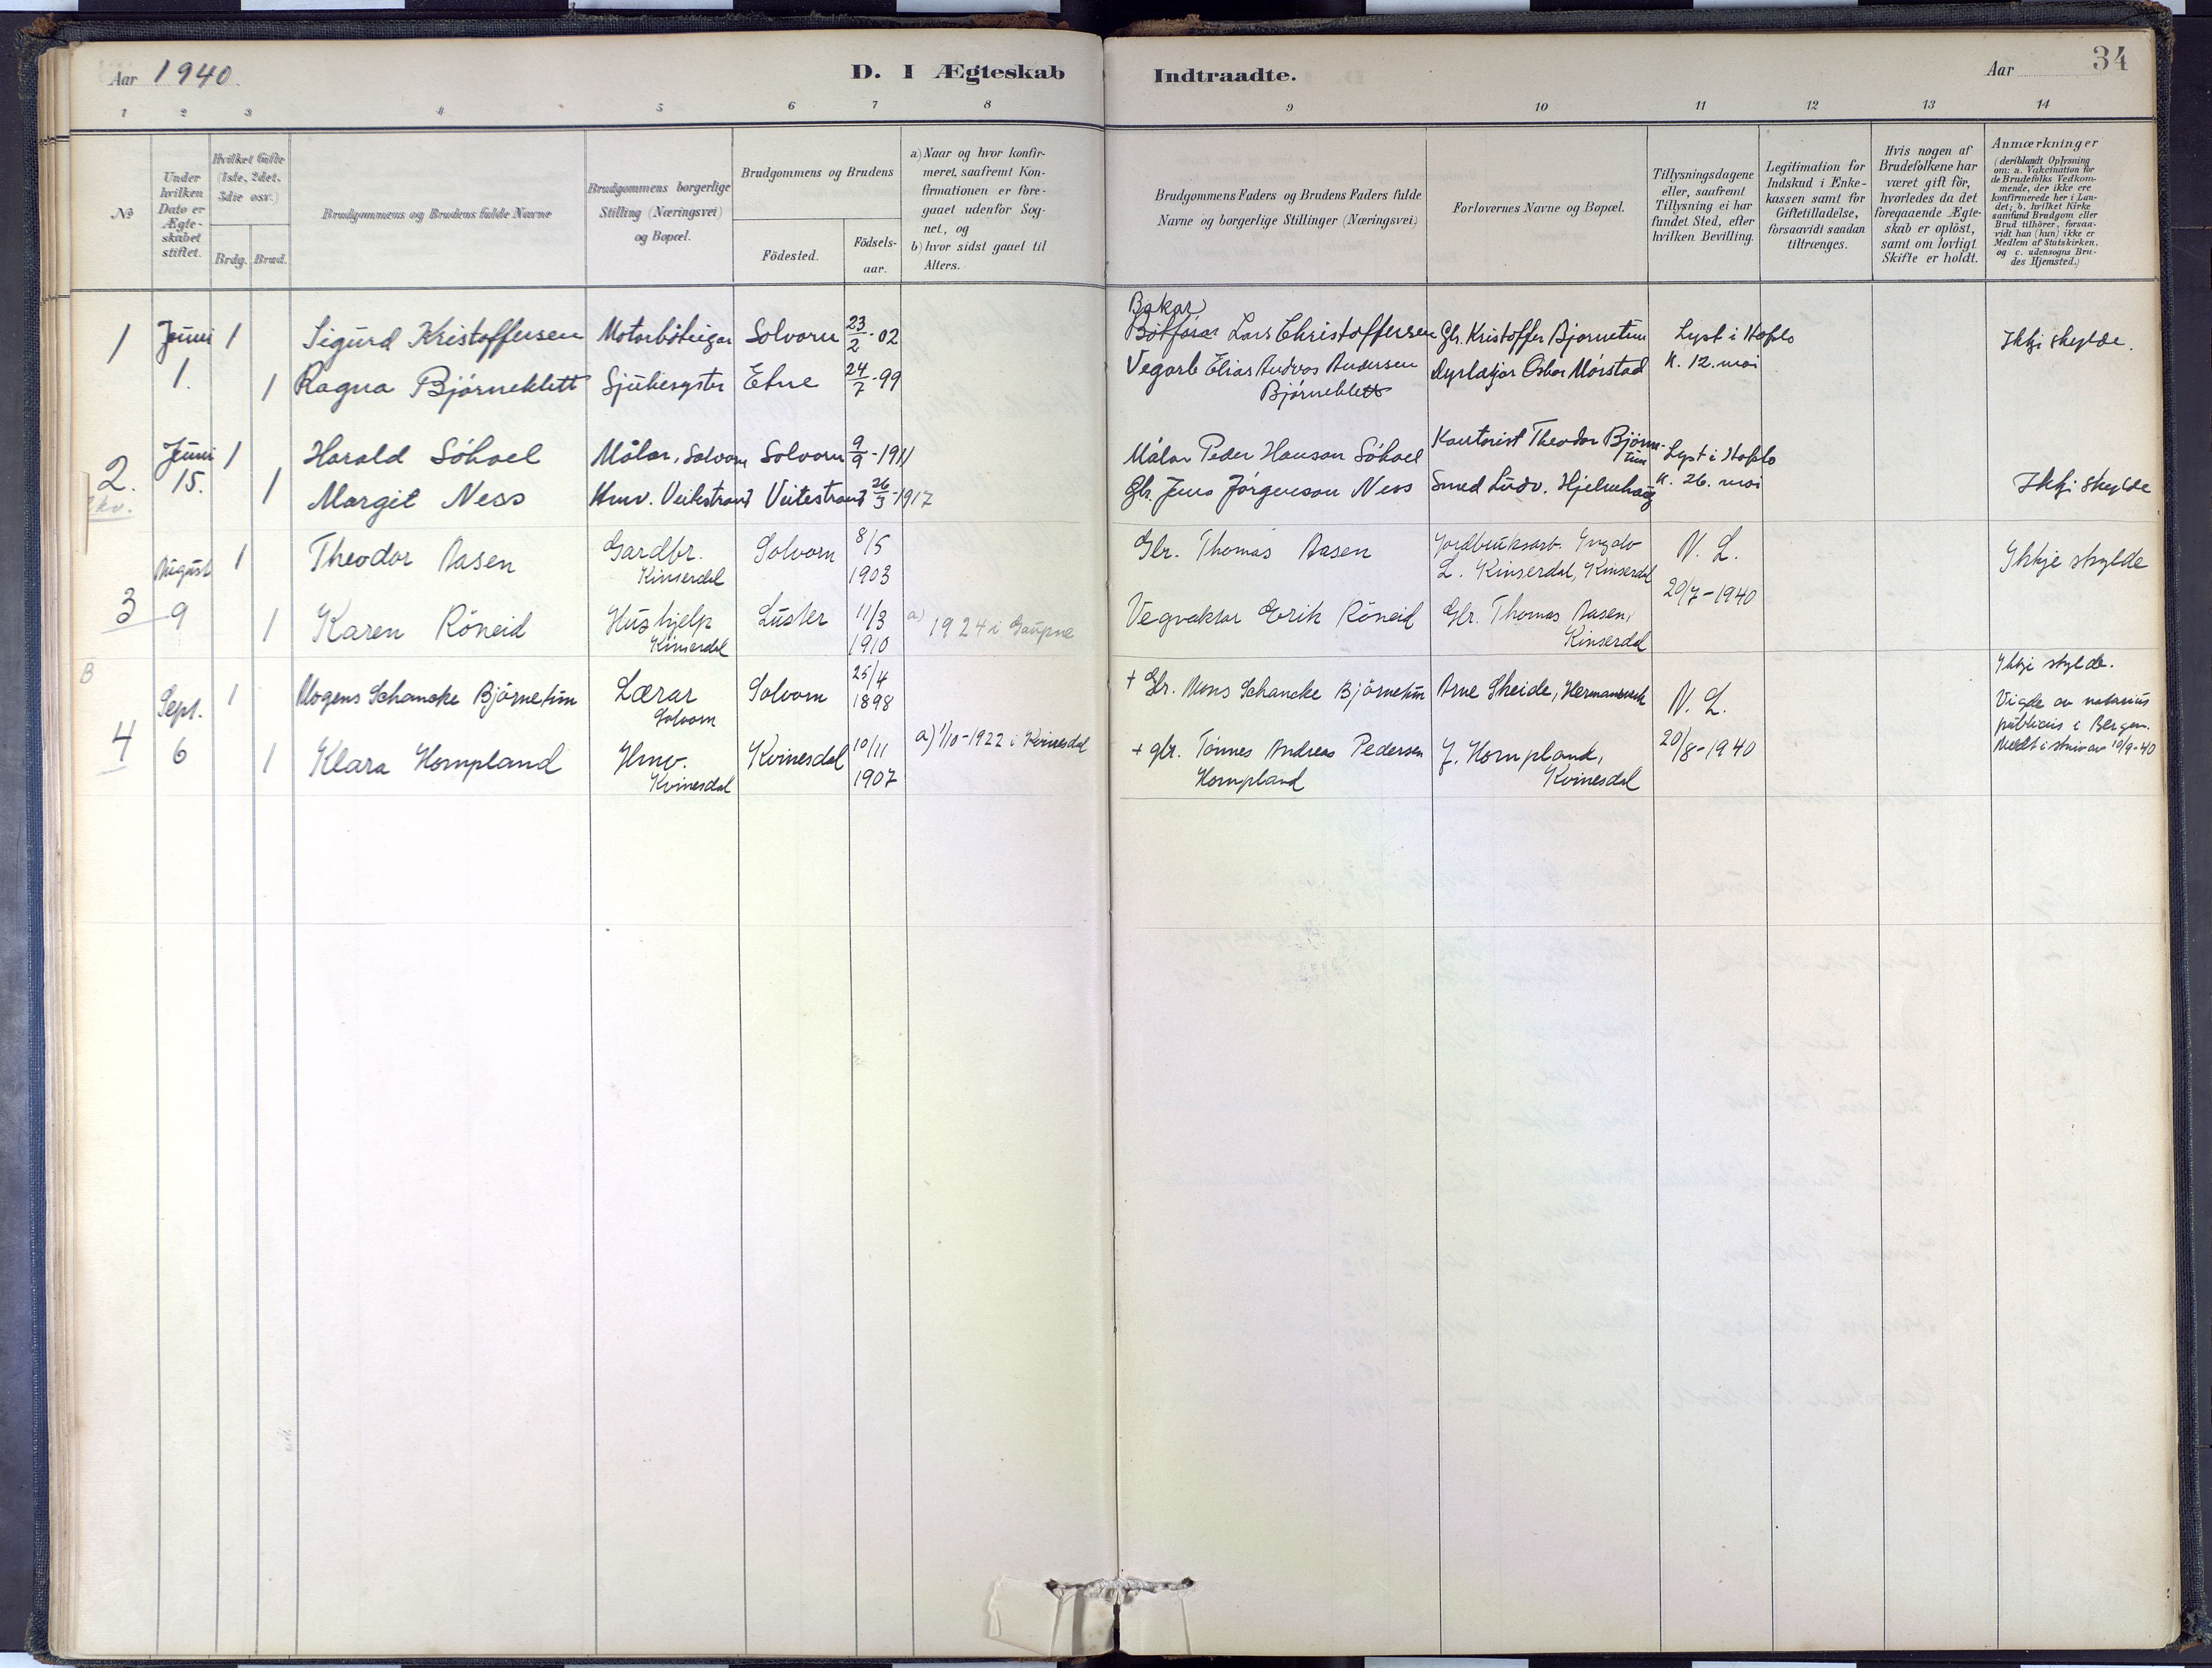 Aar 1940.
D. I Ægteskab Indtraadte.
Aar
34
1 2 3 4 5 6 7 8 9 10 11 12 13 14
No
Under hvilken Dato er Ægte-skabet stiftet.
Hvilket Gifte (1ste, 2det, 3die osv.)
Brdg. Brud.
Brudgommens og Brudens fulde Navne
Brudgommens borgerlige Stilling (Næringsvei) og Bopæl.
Brudgommens og Brudens
Födested.
Födsels-aar.
a) Naar og hvor konfir-meret, saafremt Kon-firmationen er fore-gaaet udenfor Sog-net, og
b) hvor sidst gaaet til Alters.
Brudgommens Faders og Brudens Faders fulde Navne og borgerlige Stillinger (Næringsvei)
Forlovernes Navne og Bopæl.
Tillysningsdagene eller, saafremt Tillysning ei har fundet Sted, efter hvilken Bevilling.
Legitimation for Indskud i Enke-kassen samt for Giftetilladelse, forsaavidt saadan tiltrænges.
Hvis nogen af Brudefolkene har været gift för, hvorledes da det foregaaende Ægte-skab er oplöst, samt om lovligt Skifte er holdt.
Anmærkninger (deriblandt Oplysning om: a. Vakcination for de Brudefolks Vedkom-mende, der ikke ere konfirmerede her i Lan-det; b. hvilket Kirke samfund Brudgom eller Brud tilhörer, forsaa-vidt han (hun) ikke er Medlem af Statskirken, og c. udensogns Bru-des Hjemsted.)
1 Juni 1 Sigurd Kristoffersen Motorbåteigar Solvorn 23/2-02 Bakar Lars Christoffersen Gbr. Kristoffer Bjørnetun Lyst i Hafslo Ikkji skylde.
1. 1 Ragna Björneklett Sjukesyster Etne 24/7-99 Vegarb Elias Andreas Andersen Björneklett Dyrlækjar Oskar Mórstad K. 12. mai
2. Juni 15. 1 Harald Sóhoel Målar, Solvorn Solvorn 9/9-1911 Målar Peder Hanson Sóhoel Kontorist Theodor Björnetun Lyst i Hafslo
1 Margit Ness Hmv. Veitestrand Veitestrand 26/3-1917 Gbr. Jens Jórgenson Ness Smed Ludv. Hjelmhaug K. 26. mai Ikkji skylde
3 August 9 1 Theodor Aasen Gardbr. Kinserdal Solvorn 8/5 1903 Gbr. Thomas Aasen Jordbruksarb. Ingolv L. Kinserdal, Kinserdal N. L. 20/7-1940 Ikkje skylde
1 Karen Röneid Hushjelp Kinserdal Luster 11/3 1910 a) 1924 i Gaupne Vegvaktar Eirik Röneid Gbr. Thomas Aasen, Kinserdal
B
4 Sept. 6 1 Mogens Schancke Björnetun Lærar Solvorn Solvorn 25/4 1898 + Gbr. Mons Schancke Björnetun Arne Skeide, Hermansverk N. L. 20/8-1940 Ikkje skylde. Vigde av notarius publicus i Bergen.
1 Klara Hompland Hmv. Kvinesdal Kvinesdal 10/11 1907 a) 1/10-1922 i Kvinesdal + gbr. Tönnes Andreas Pedersen Hompland J. Hompland, Kvinesdal Meldt i skriv av 10/9-40